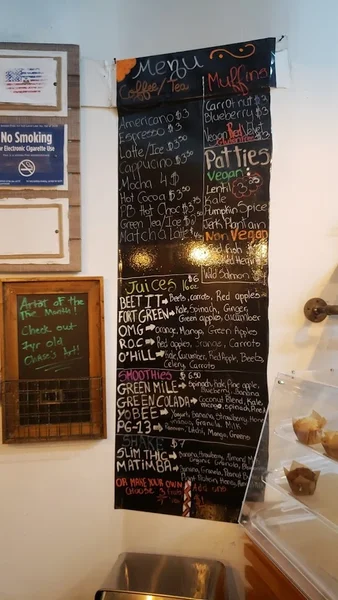 Menu
Coffee/Tea
Americano $3
Espresso $3
Latte/Ice $3.50
Cappucino $3.50
Mocha 4 $
Hot Cocoa $3.50
PB Hot Choc $3.75
Green Tea/Ice
Matcha Latte
Muffins
Carrot nut $3
Blueberry $3
Vegan Red Velvet
Patties
Vegan
Lentil
Kale
Pumpkin Spice
Jerk Plantain
Non Vegan
Wild Salmon
Juices 16oz $6
BEET IT → Beets, carrots, Red apples
FORT GREEN → Kale, Spinach, Ginger,
Green apples, Cucumber
OMG → Orange, Mango, Green Apples
ROC → Red apples, Orange, Carrots
O'HILL → Kale, Cucumber, Red Apple, Beets,
Celery, Carrots
SMOOTHIES $6.50
GREEN MILE → Spinach, Kale, Pineapple,
Blueberry, Banana
GREEN COLADA → Coconut Blend, Kale,
mango, Spinach, Pine
YO BEE → Yogurt, Banana, Strawberry, Honey
Granola, Milk
PG-13 → Mango, Greens
SHAKE $7
SLIM THIC → Banana, Strawberry, Almond M
Organic Granola,
MATIMBA → Banana, Granola, Peanut B
Plant Protein, Hemp,
OR MAKE YOUR OWN
Choose 3 from
Add ons
No Smoking
or Electronic Cigarette Use
Artist of the
the Month!
Check out
1yr old
Chase's Art!